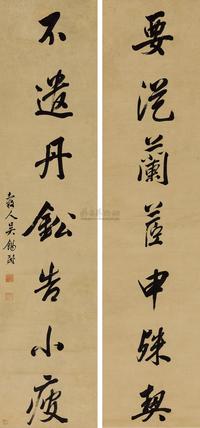 要從蘭申殊契
不遣丹鈆告小疲
穀人吳錫麒